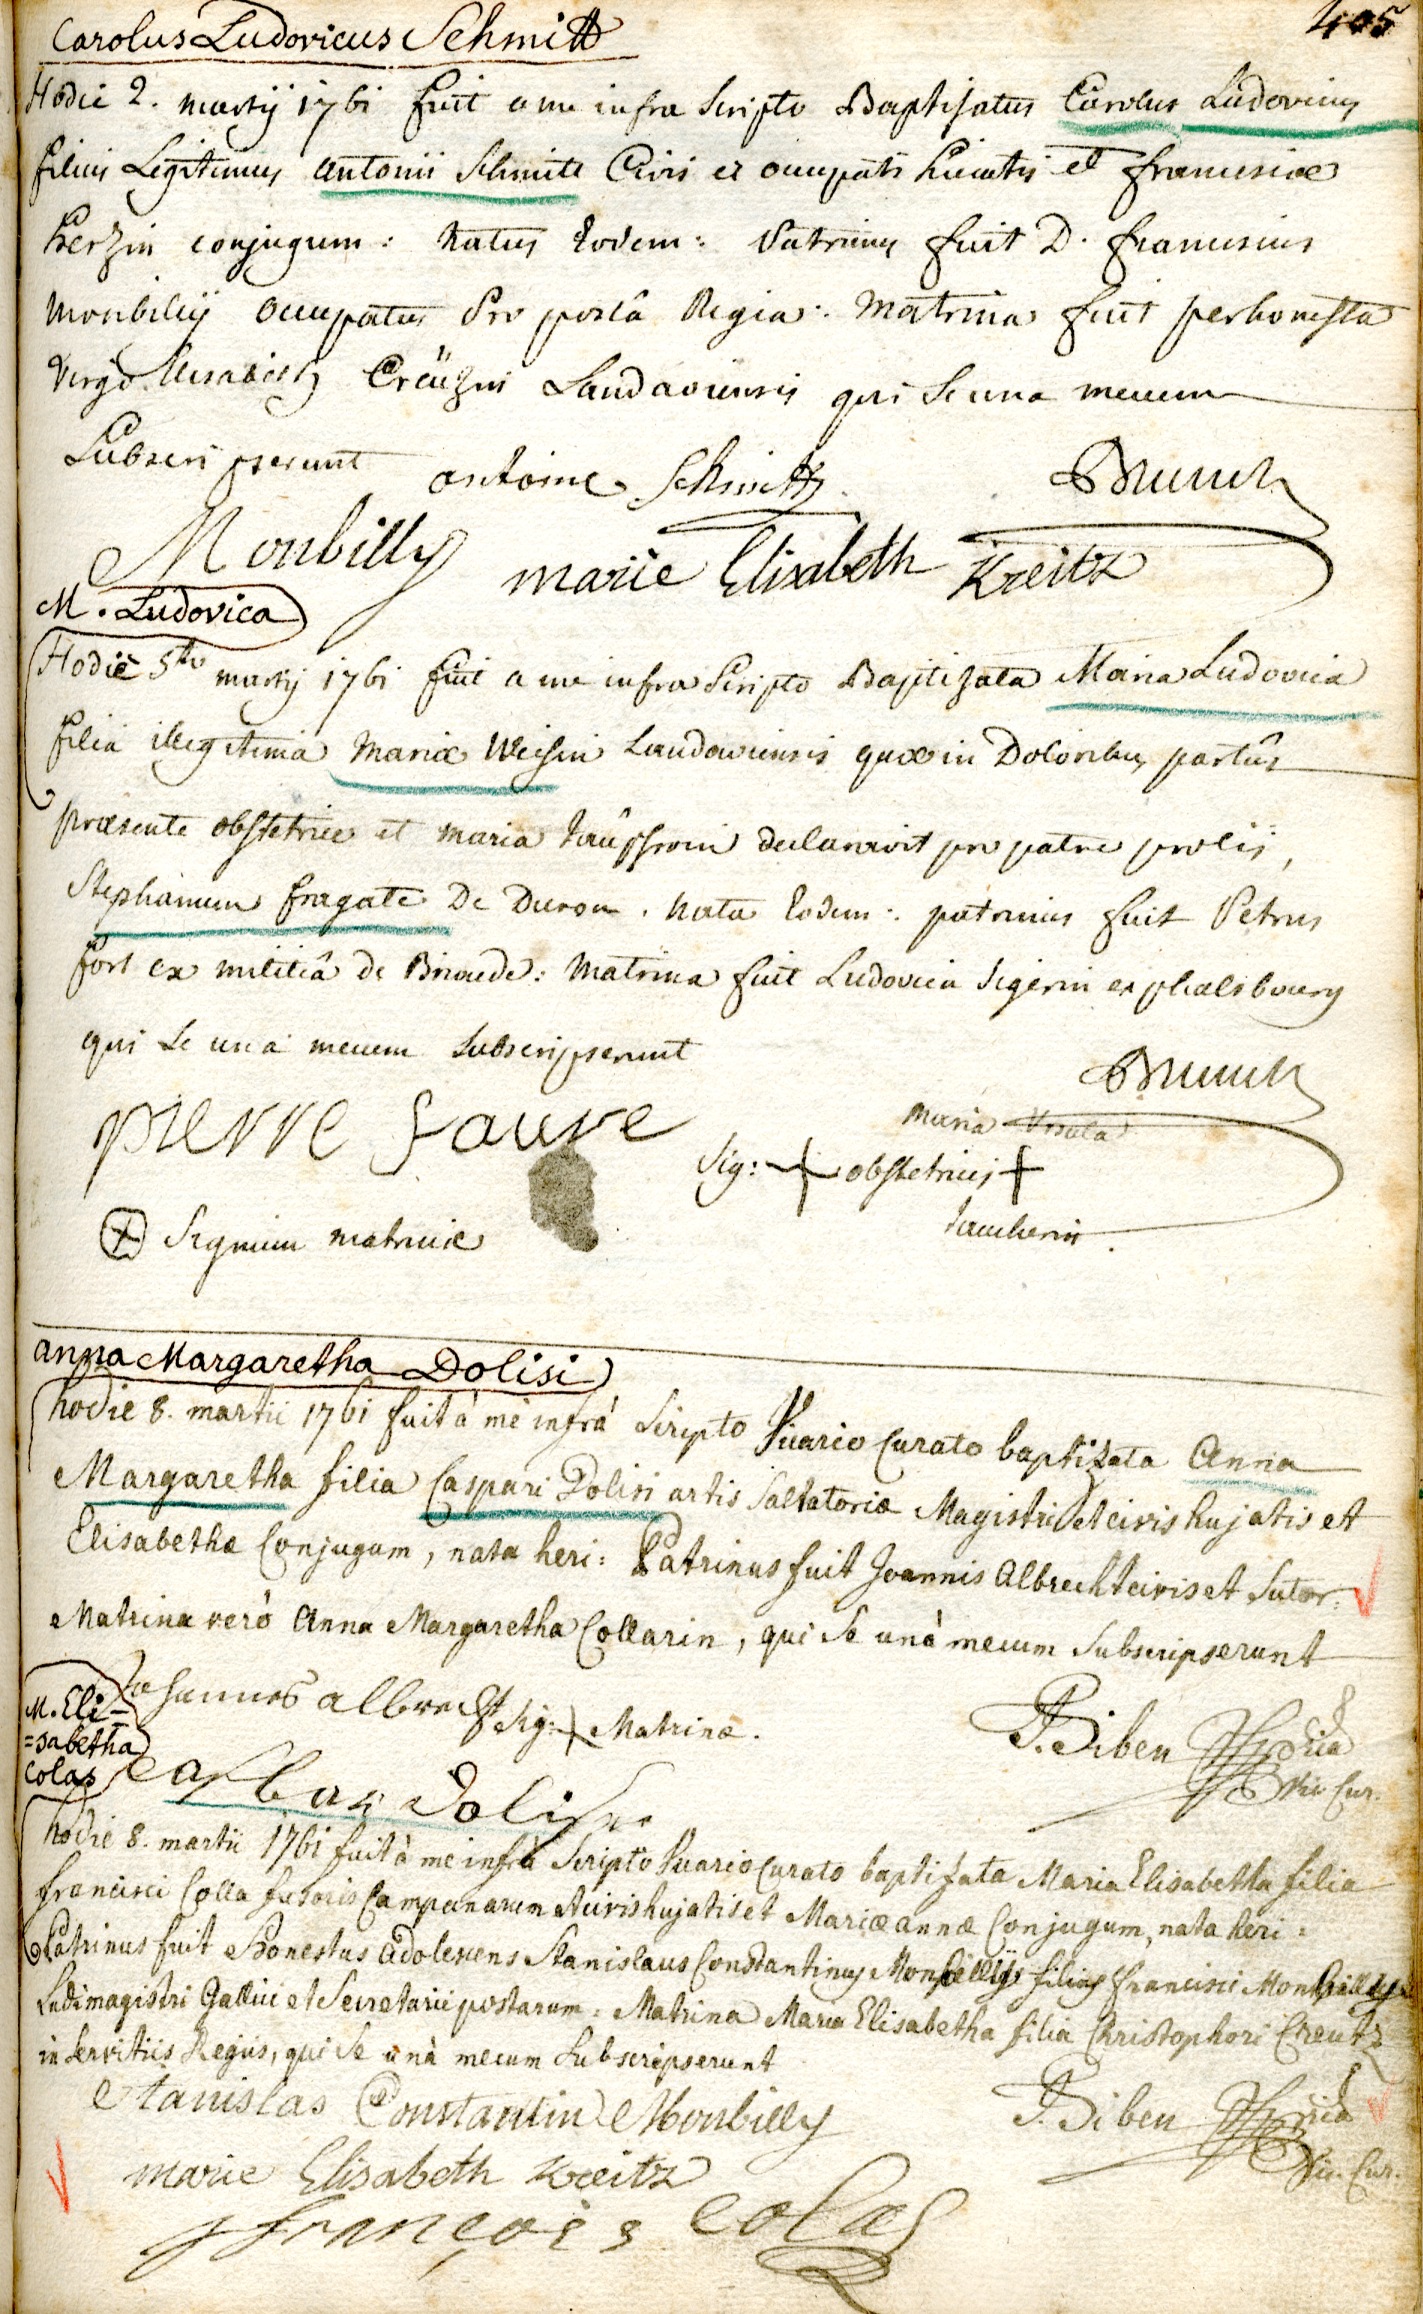 405
Carolus Ludovicus Schmitt
Hodie 2. martij 1761 fuit a me infra scripto Baptisatus Carolus Ludovicus
filius Legitimus antonii Schmitt Civis et occupati hicatis et franciscæ
herzin conjugum: natus eodem: patrinus fuit D. franciscus
monbilij occupatus pro postâ Regia: matrina fuit perhonesta
virgo Elisabeth Creützin Landaviensis qui se una mecum
subscripserunt
antoine Schmitt
Brunck
Monbilly
marie Elisabeth Kreitz
M. Ludovica
Hodie 5ta martij 1761 fuit a me infra scripto Baptizata Maria Ludovica
filia illegitima mariæ Weisin Landaviensis quæ in Doloribus partûs
præsente obstetrice et maria declaravit pro patre prolis,
Stephanum fragate De . nata eodem: patrinus fuit Petrus
fort ex militiâ de : matrina fuit Ludovica Sigerin ex phalsbourg
qui se una mecum subscripserunt
Brunck
pierre faure
maria Ursula
Sig: + obstetricis +
Signum matrinæ
anna Margaretha Dolisi
hodie 8. martii 1761 fuit à me infrà scripto Vicario Curato baptizata Anna
Margaretha filia Caspari Dolisi artis saltatoriæ Magistri et civis hujatis et
Elisabethæ Conjugum, nata heri: Patrinus fuit Joannis Albrecht civis et sutor:
Matrina verò Anna Margaretha Collarin, qui se unà mecum subscripserunt
Johannes albrecht
Sig: + Matrinæ.
P. Siben
Vic Cur.
M. Eli=
=sabetha
Colas
Casbar Dolisi
hodie 8. martii 1761 fuit à me infrà scripto Vicario Curato baptizata Maria Elisabetha filia
francisci Colla fusoris Campanarum et civis hujatis et Mariæ annæ Conjugum, nata heri:
Patrinus fuit honestus adolescens Stanislaus Constantinus Monbillij filius francisci Monbilly
Ludimagistri Gallici et Secretarii postarum: Matrina Maria Elisabetha filia Christophori Creutz
in servitiis Regiis, qui se unà mecum subscripserunt
Stanislas Constantin Monbilly
P. Siben
Vic. Cur.
marie Elisabeth Kreitz
françois Colas